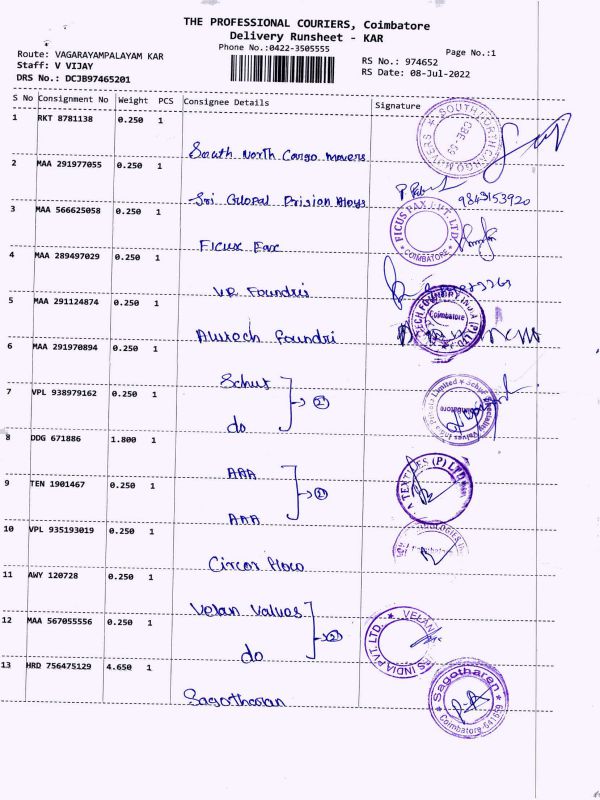 THE PROFESSIONAL COURIERS, Coimbatore
Delivery Runsheet - KAR
Phone No.:0422-3505555
Page No.:1
Route: VAGARAYAMPALAYAM KAR
Staff: V VIJAY
DRS No.: DCJB97465201
RS No.: 974652
RS Date: 08-Jul-2022
S No Consignment No Weight PCS Consignee Details Signature
1 RKT 8781138 0.250 1
South North Cargo Movers
SOUTH NORTH CARGO MOVERS
CBE-59
2 MAA 291977055 0.250 1
9843153920
3 MAA 566625058 0.250 1
FICUS PAX PVT. LTD.
COIMBATORE
4 MAA 289497029 0.250 1
VR Foundris
5 MAA 291124874 0.250 1
Coimbatore
Foundri
6 MAA 291970894 0.250 1
7 VPL 938979162 0.250 1
do
8 DDG 671886 1.800 1
AAA
9 TEN 1901467 0.250 1
AAA
A TEXTILES (P) LTD
10 VPL 935193019 0.250 1
11 AWY 120728 0.250 1
Velan Valves
12 MAA 567055556 0.250 1
do
VELAN
S INDIA PVT. LTD.
13 HRD 756475129 4.650 1
Sagotharan
Sagotharen
Coimbatore-641659